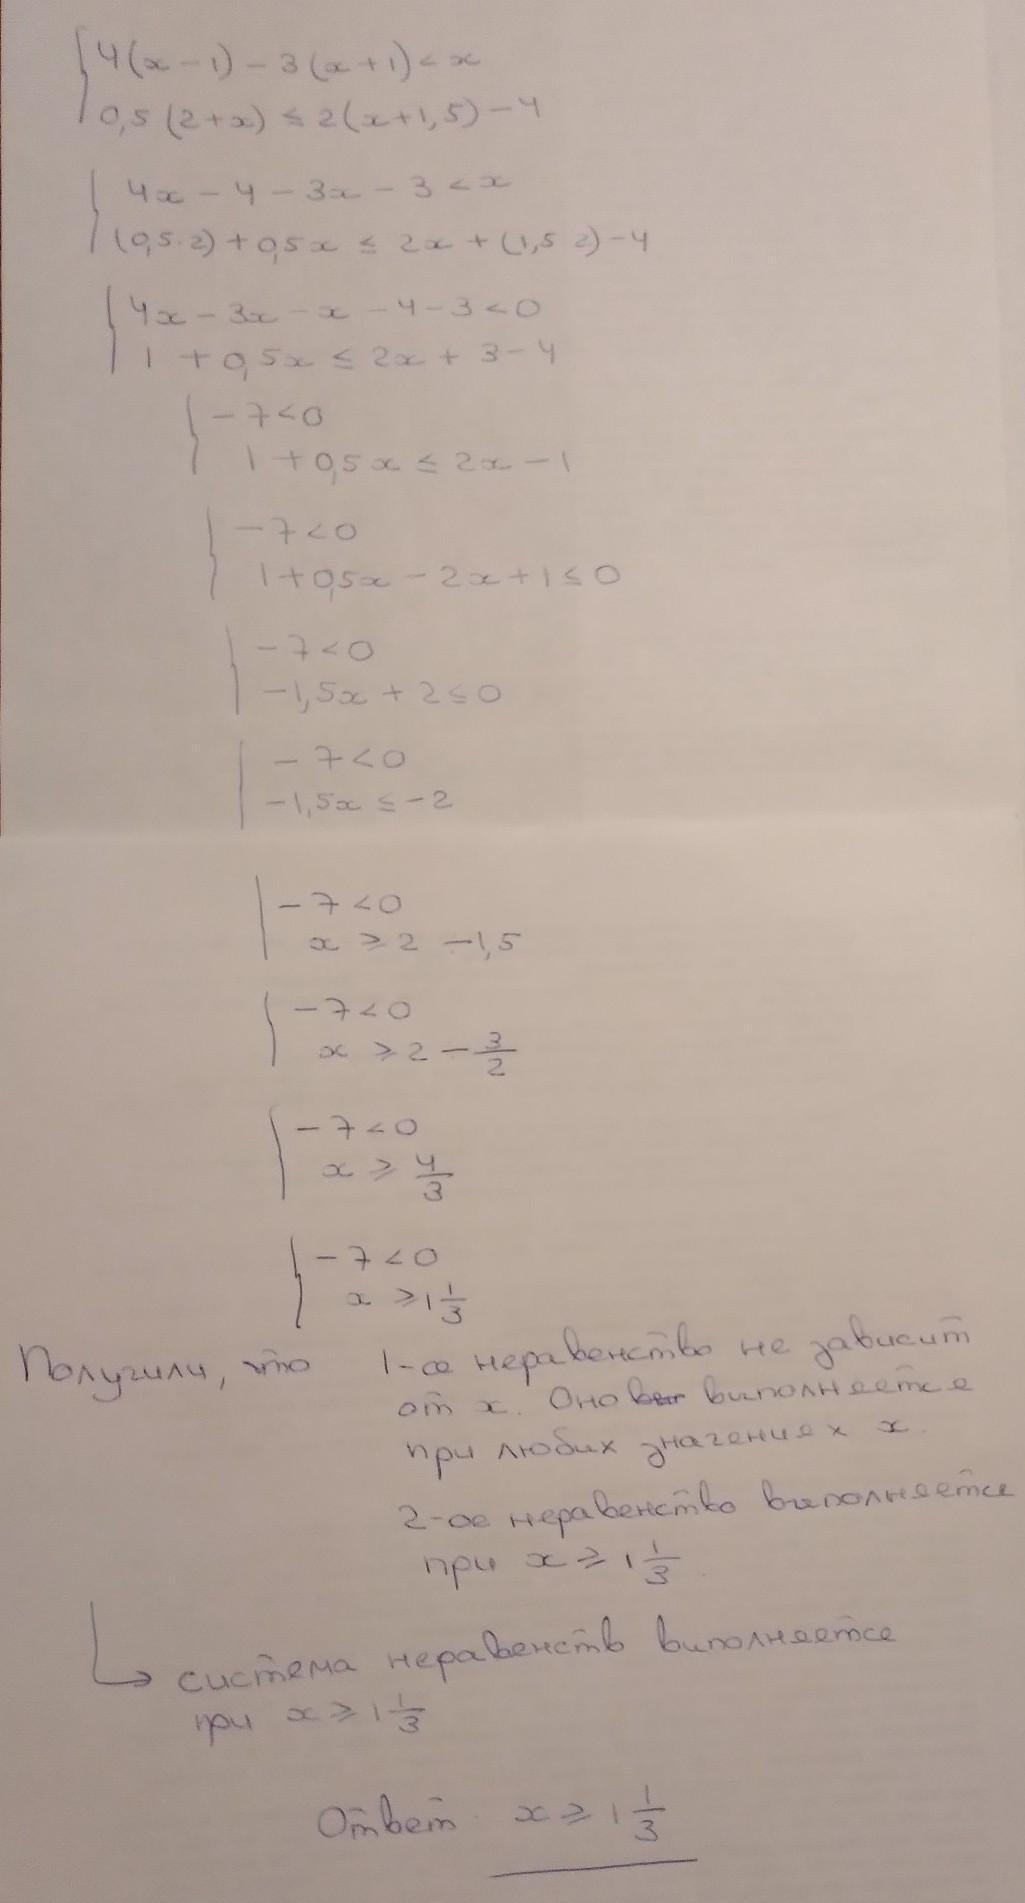 { 4(x-1) - 3(x+1) < x
0,5(2+x) ≤ 2(x+1,5) - 4
{ 4x - 4 - 3x - 3 < x
(0,5·2) + 0,5x ≤ 2x + (1,5 2) - 4
{ 4x - 3x - x - 4 - 3 < 0
1 + 0,5x ≤ 2x + 3 - 4
{ -7 < 0
1 + 0,5x ≤ 2x - 1
{ -7 < 0
1 + 0,5x - 2x + 1 ≤ 0
{ -7 < 0
-1,5x + 2 ≤ 0
{ -7 < 0
-1,5x ≤ -2
{ -7 < 0
x ≥ 2 - 1,5
{ -7 < 0
x ≥ 2 - 3/2
{ -7 < 0
x ≥ 4/3
{ -7 < 0
x ≥ 1 1/3
Получили, что 1-ое неравенство не зависит
от x. Оно выполняется
при любых значениях x.
2-ое неравенство выполняется
при x ≥ 1 1/3.
↳ система неравенств выполняется
при x ≥ 1 1/3
Ответ. x ≥ 1 1/3